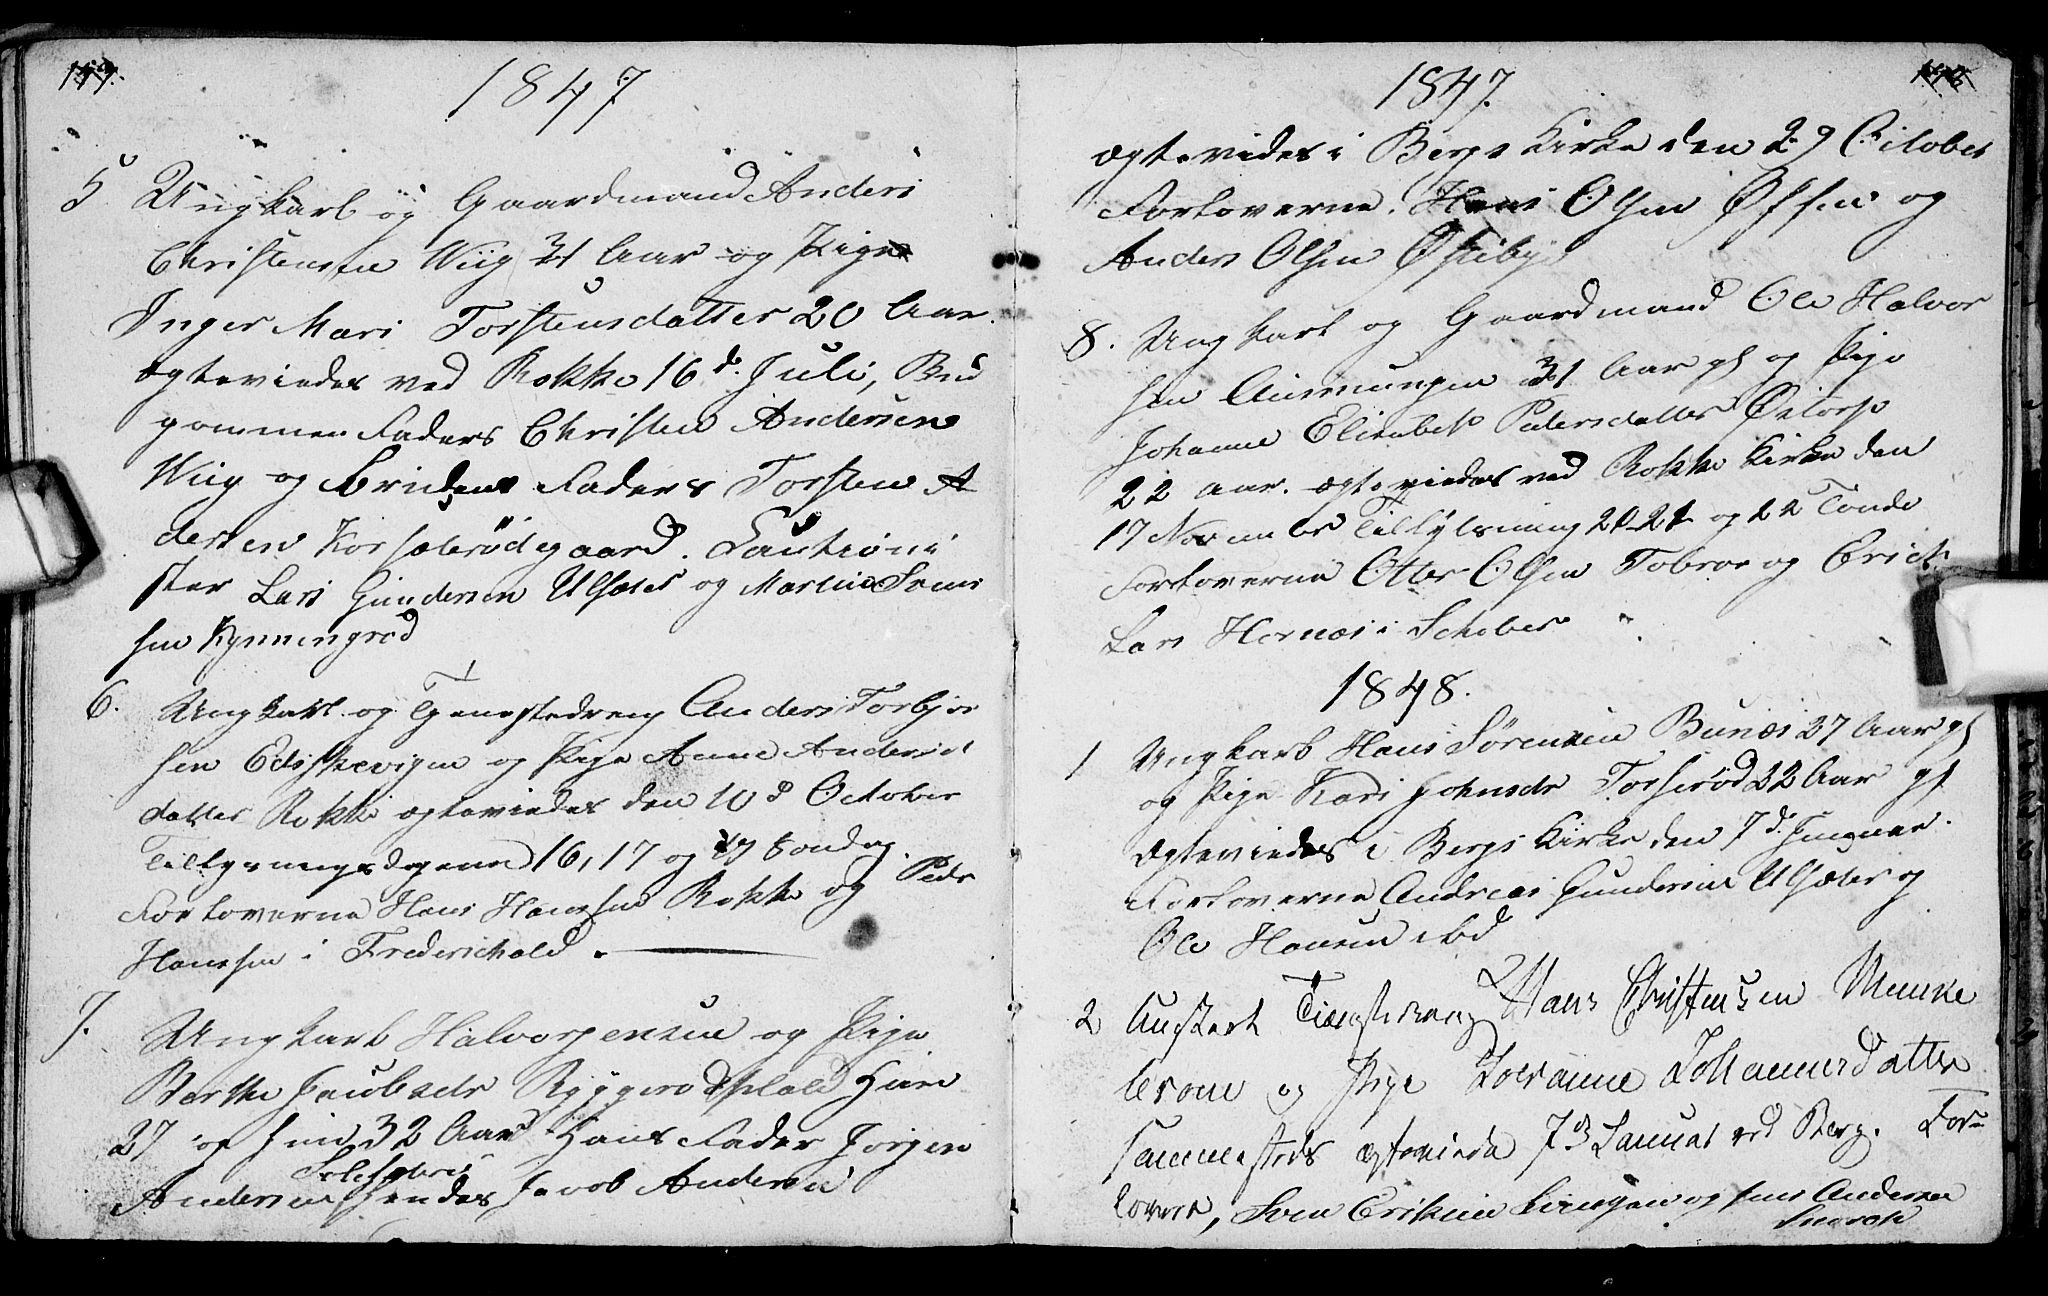 1847
5 Ungkarl og Gaardmand Anders
Christensen Wiig 31 Aar og Pige
Inger Mari Torstensdatter 20 Aar.
ægteviedes ved Rokke 16 d. Juli, Brud
gommens Faders Christen Andersen
Wiig og Brudens Faders Torsten A
dersen Korsæterødegaard. Cautioni
ster Lars Gundersen Ulsæter og Martin Svens
sen Kynningrød
6. Ungkarl og Tjenestedreng Anders Torbjør
sen Edsskevigen og Pige Anne Anders
datter Rokke ægteviedes den 10 d October
Tillysningsdagene 16, 17 og Søndag.
Forloverne Hans Hanssen Rokke og Peder
Hanssen i Frederichald.
7. Ungkarl Halvor Jensen og Pige
Berthe Jacobsdr Ryggerødsplads Han
27 og hun 32 Aar Hans Fader Jørgen
Andersen hendes Jacob Andersen
1847.
ægteviedes i Bergs Kirke den 29 October
Forloverne. Hans Olsen og
Anders Olsen Østebye
8. Ungkarl og Gaardmand Ole Halvor
sen 31 Aar gl og Pige
Johanne Elisabeth Pedersdatter Østorp
22 aar. ægteviedes ved Rokke Kirke den
17 November Tillysning 20 21 og 22 Tonde
Forloverne Otter Olsen Tobroe og Erich
Lars Hornæs i Scheber
1848.
1 Ungkarl Hans Sørensen Bunæs 27 Aar gl
og Pige Kari Johnsdr Torserød 22 Aar gl
ægteviedes i Bergs Kirke den 7 d. Januar.
Forloverne Andreas Gundersen Ulsæter og
Ole Hansen ibd
2 Ungkarl Tienestedreng Hans Christensen Menke
og Pige Johanne Johannesdatter
sammesteds ægteviede 7 d Januar ved Berg. For=
lovere, Sven Eriksen og Jens Andersen